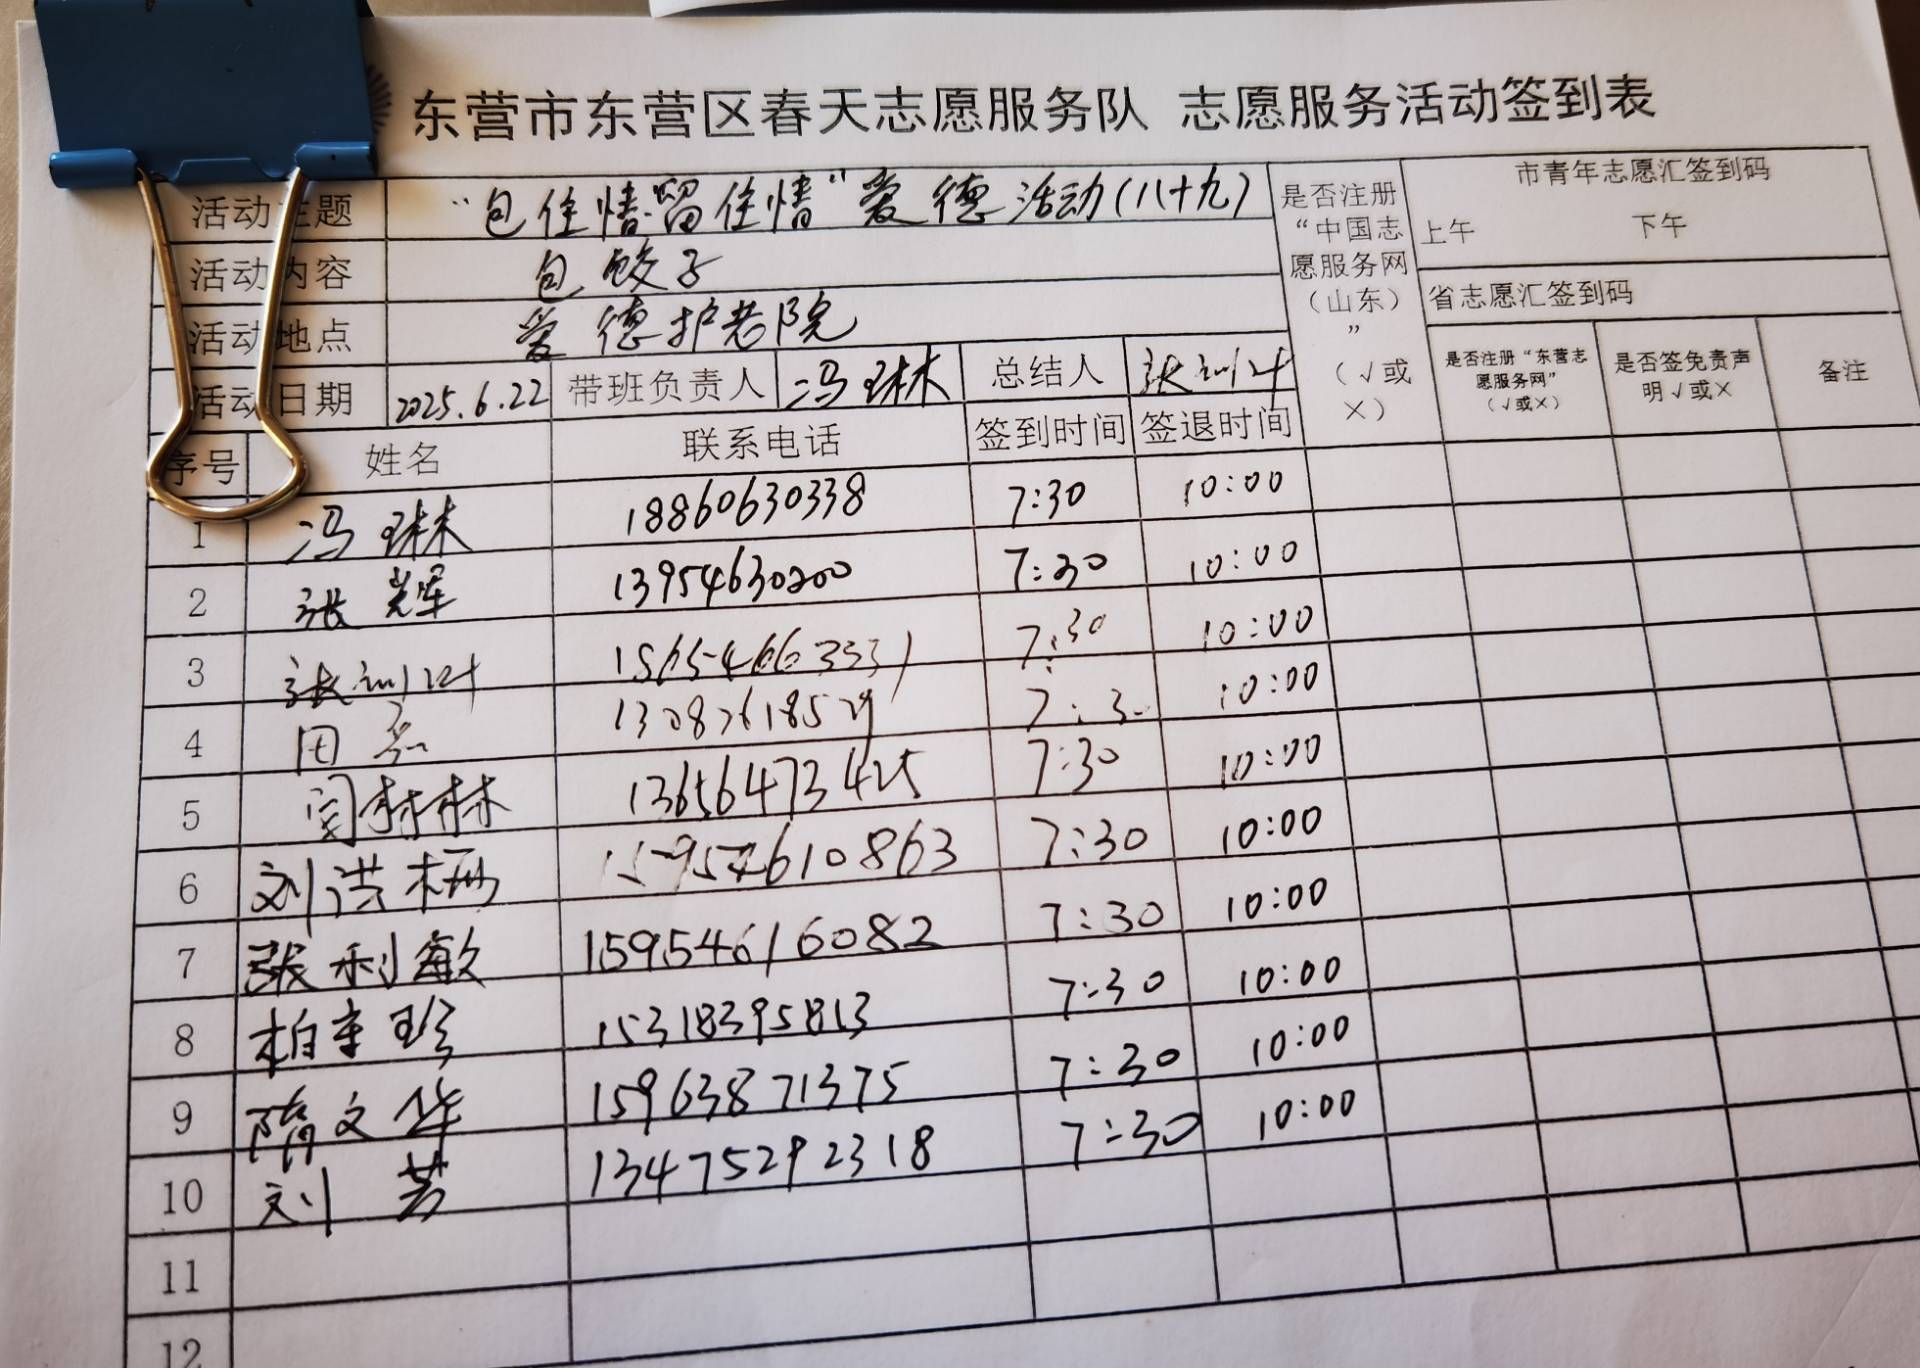 东营市东营区春天志愿服务队 志愿服务活动签到表
活动主题 “包住情留住情”爱德活动(八十九) 是否注册“中国志愿服务网(山东)”(√或×) 市青年志愿汇签到码
上午 下午
活动内容 包饺子 省志愿汇签到码
活动地点 爱德护老院
活动日期 2025.6.22 带班负责人 冯琳 总结人 是否注册“东营志愿服务网”(√或×) 是否签免责声明√或× 备注
序号 姓名 联系电话 签到时间 签退时间
1 冯琳 18860630338 7:30 10:00
2 张辉 13954630200 7:30 10:00
3 7:30 10:00
4 7:30 10:00
5 13656473425 7:30 10:00
6 刘洪梅 15954610863 7:30 10:00
7 张利敏 15954616082 7:30 10:00
8 15318395813 7:30 10:00
9 隋文华 15963871375 7:30 10:00
10 刘芳 13475292318 7:30 10:00
11
12